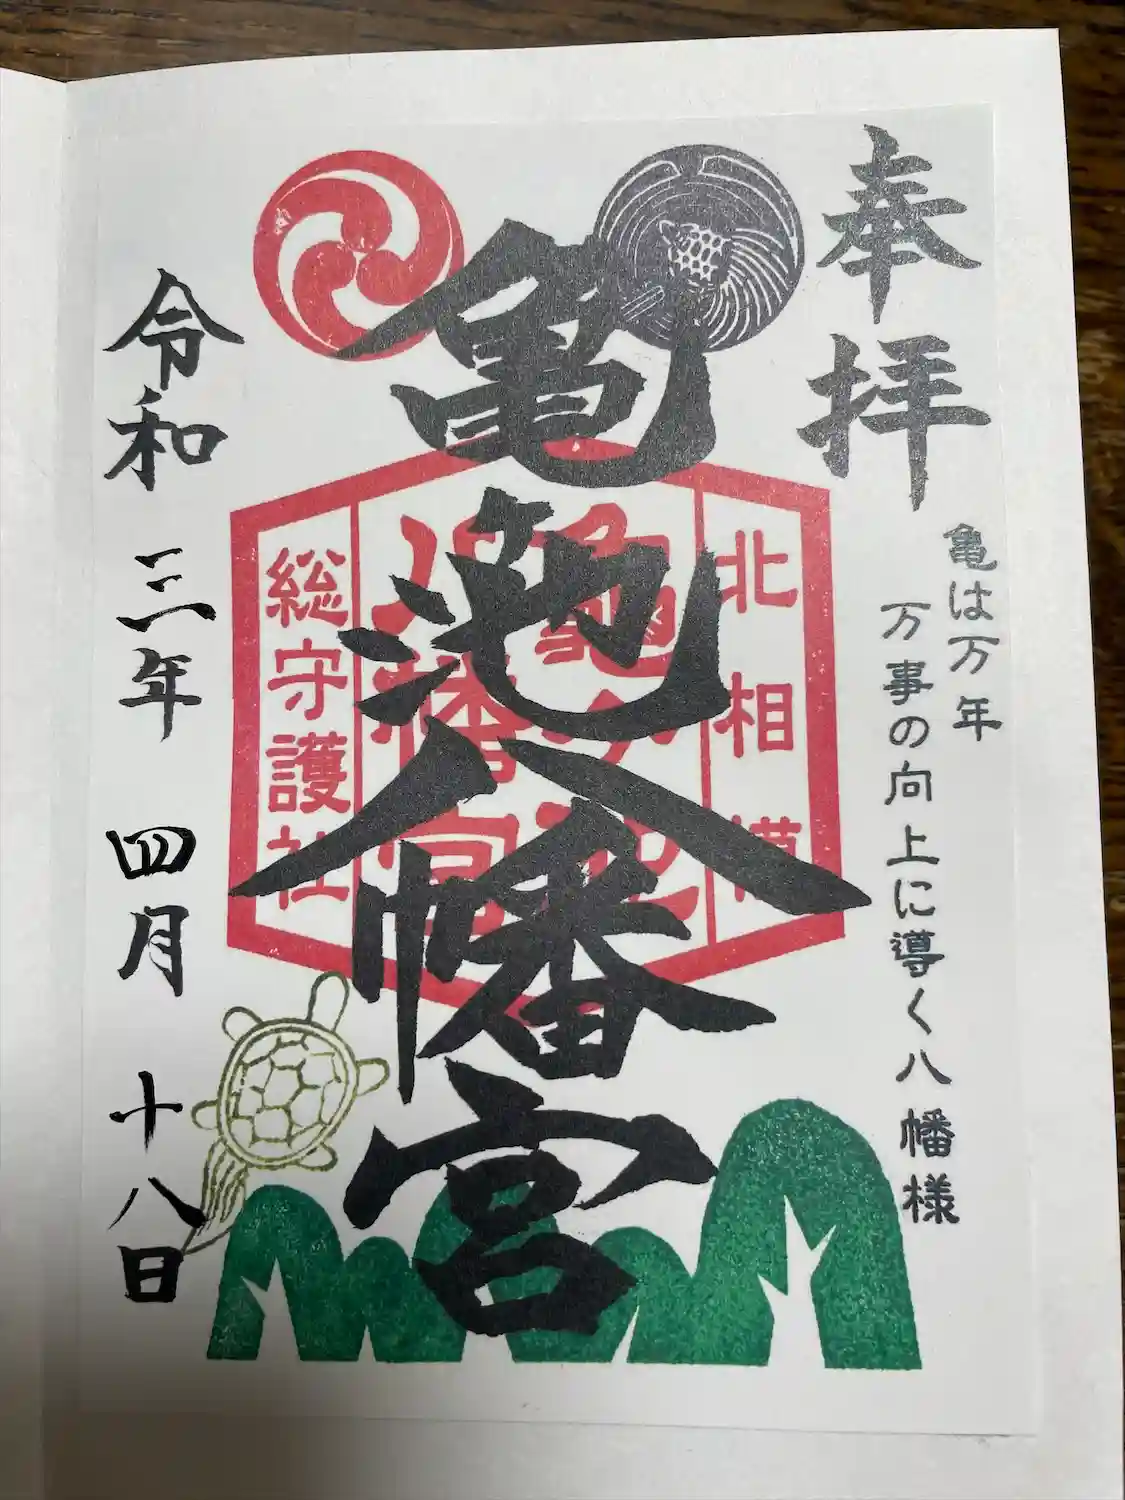 奉拝
亀は万年
万事の向上に導く八幡様
亀池八幡宮
北相模
亀ヶ池
八幡宮
総守護社
令和三年四月十八日